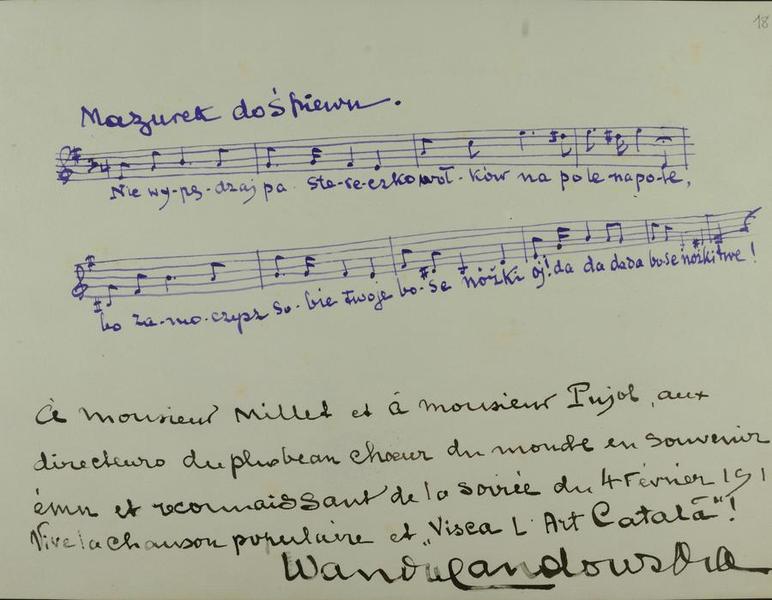 18
Mazurek do Śpiewu.
3 4
Nie wy-pę-dzaj pa ste-re-czko woł-ków na pole napole,
bo za-mo-czysz so-bie twoje bo-se nóżki oj! da da dada bose nóżki twe!
à monsieur Millet et à monsieur Pujol, aux
directeurs du plus beau chœur du monde en souvenir
ému et reconnaissant de la soirée du 4 Février 191
Vive la chanson populaire et „Visca L'Art Catalã"!
Wanda Landowska